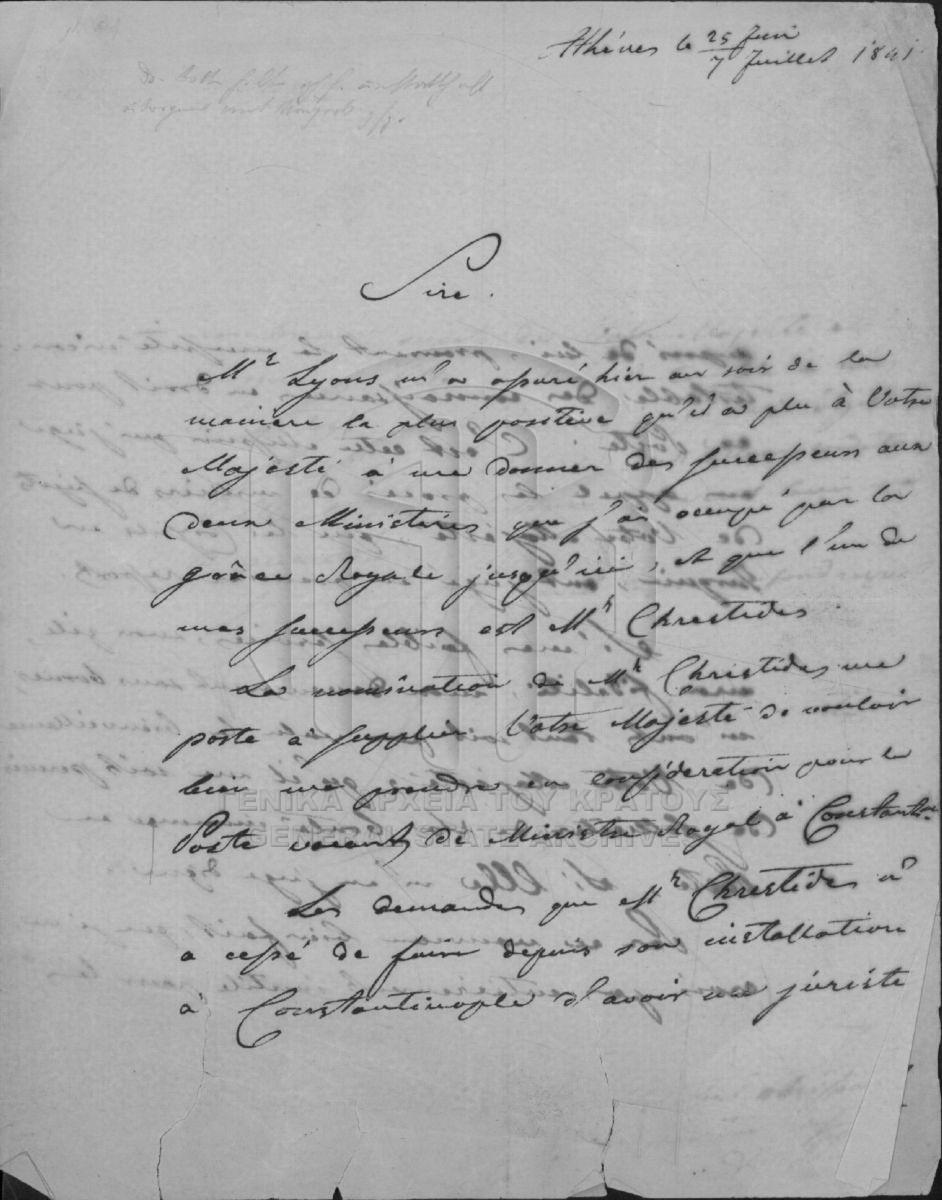 Athènes le 25 Juin
7 Juillet 1841.
Sire.
Mr Lyons m'a assuré hier au soir de la
manière la plus positive qu'il a plu à Votre
Majesté à me donner des successeurs aux
deux Ministères que j'ai occupé par la
grâce Royale jusqu'ici, et que l'un de
mes successeurs est Mr Chrestides
La nomination de Mr Christides me
porte à supplier Votre Majesté de vouloir
bien me prendre en considération pour le
Poste vacant de Ministre Royal à Constantple
Les demandes que Mr Chrestides n'
a cessé de faire depuis son installation
à Constantinople d'avoir un juriste
ΓΕΝΙΚΑ ΑΡΧΕΙΑ ΤΟΥ ΚΡΑΤΟΥΣ
GENERAL STATE ARCHIVES